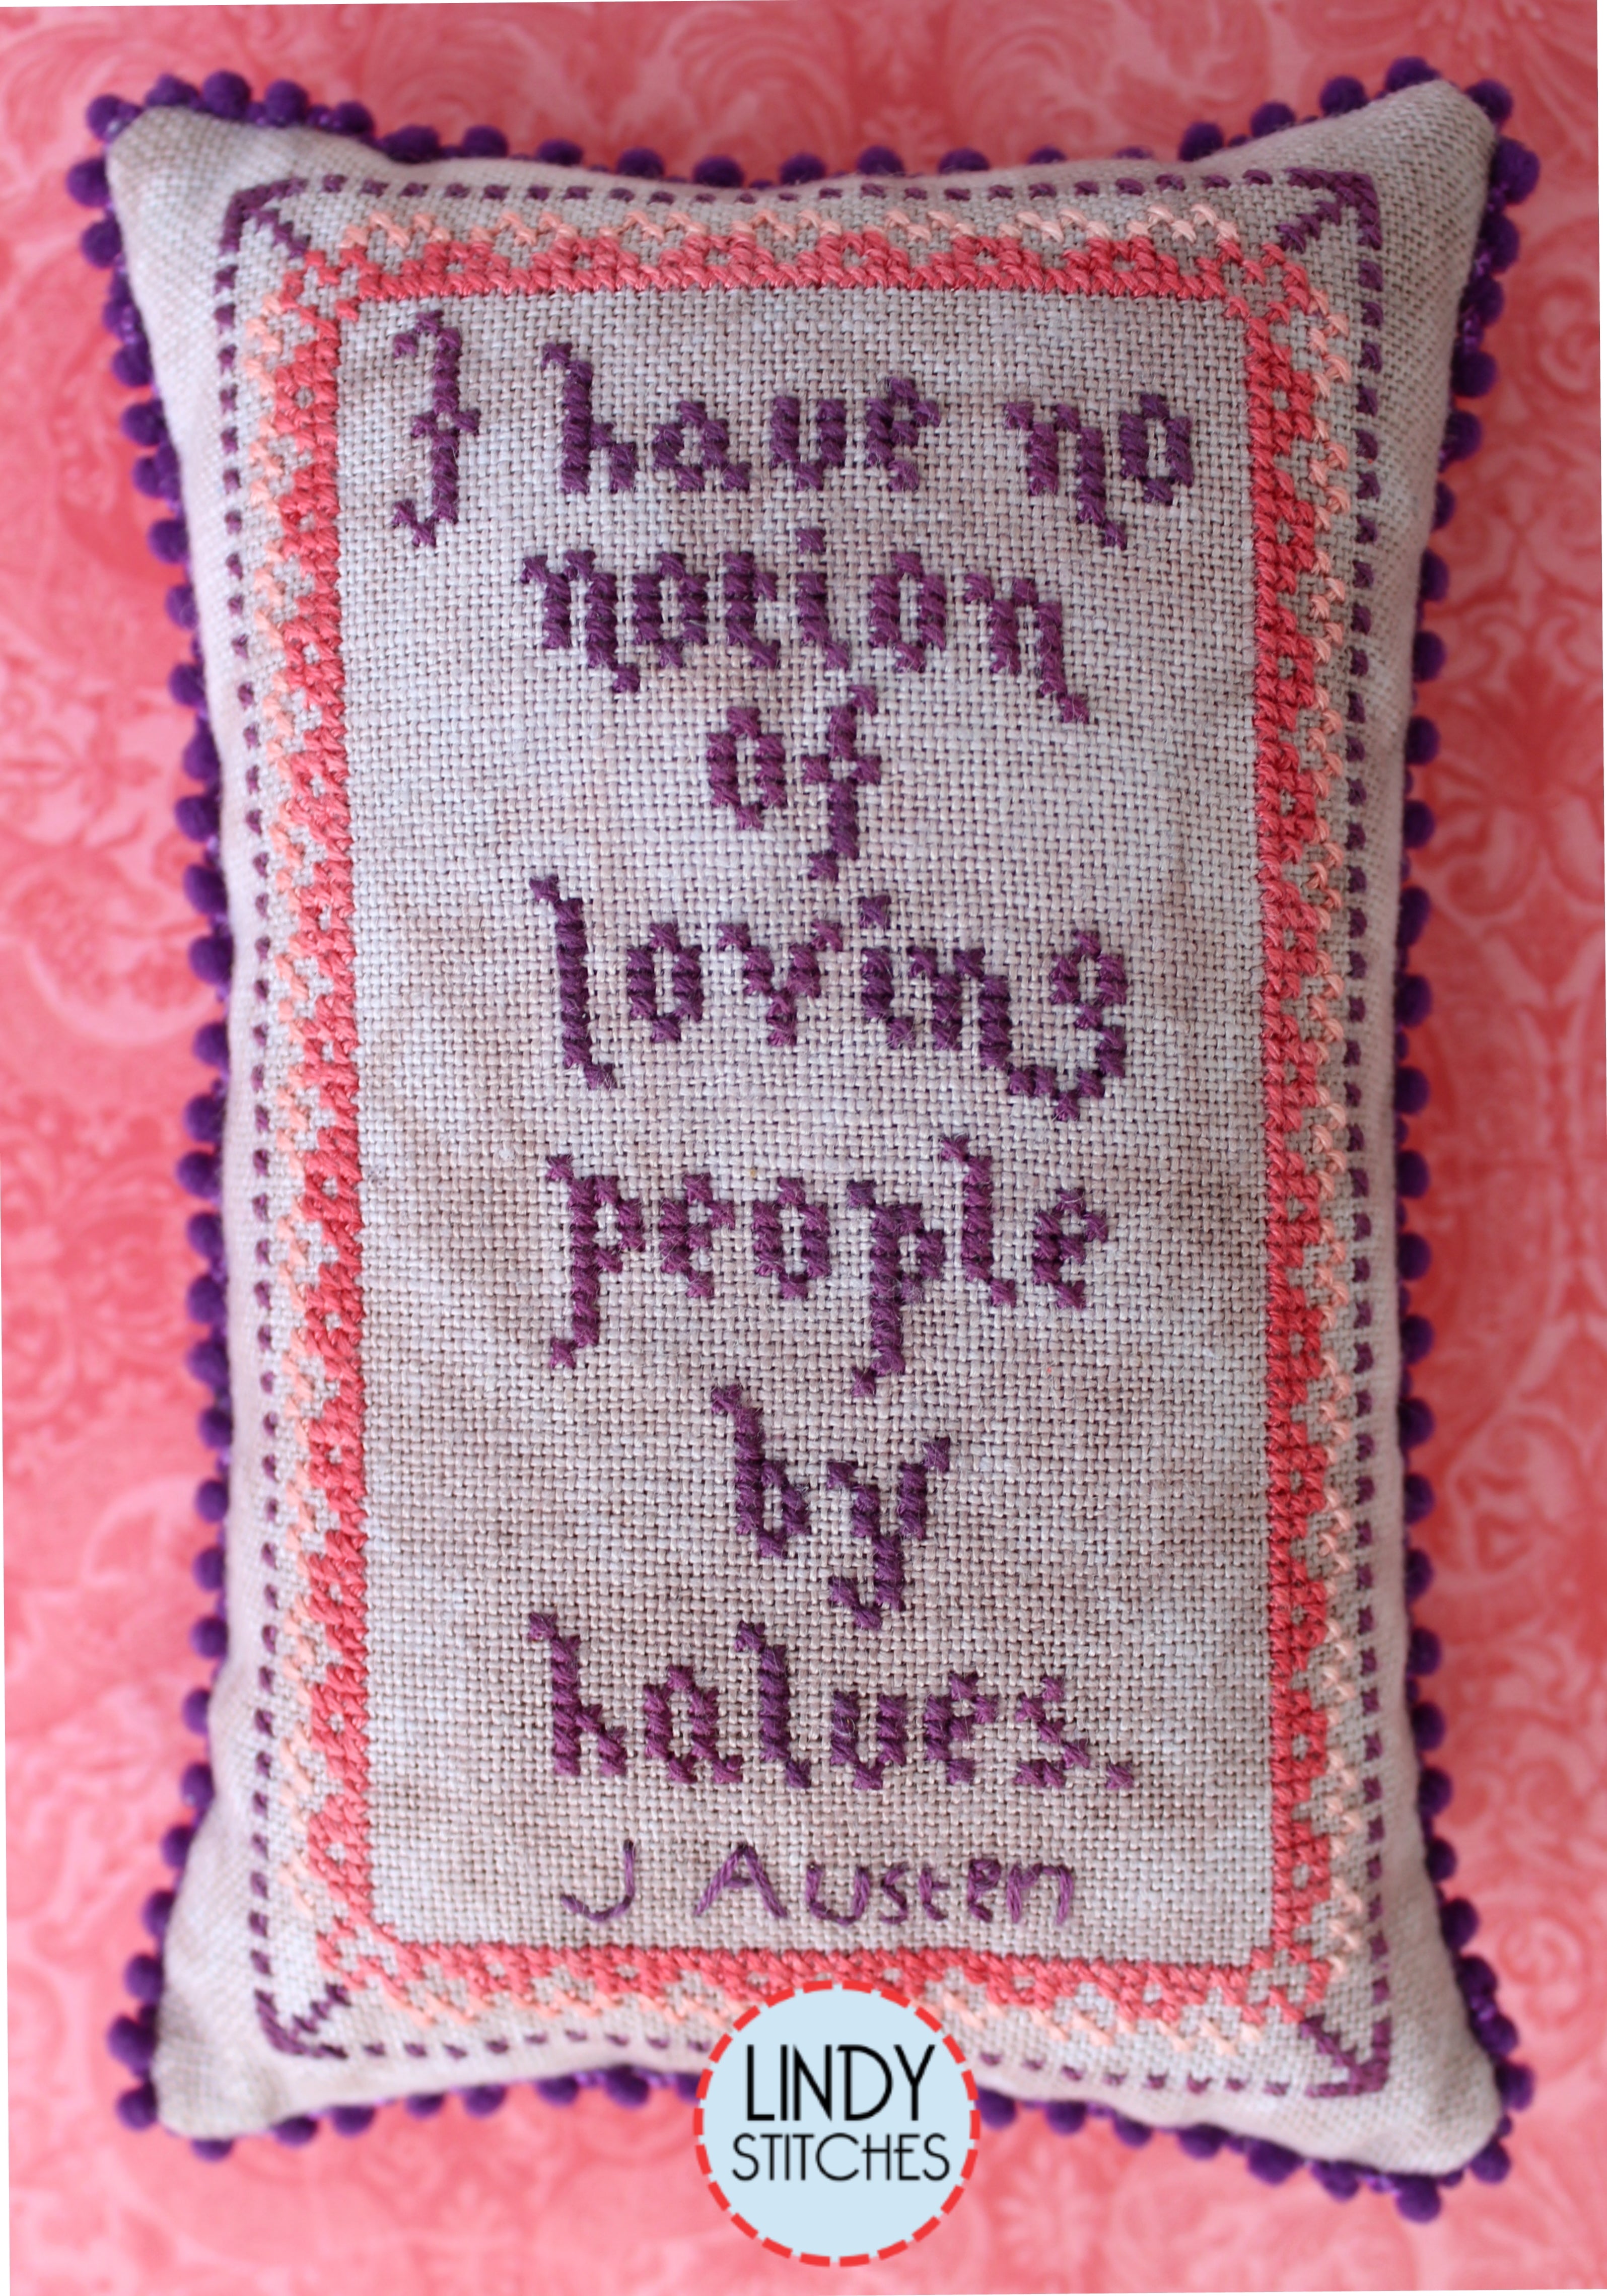 I have no
notion
of
loving
people
by
halves.
J Austen
LINDY
STITCHES